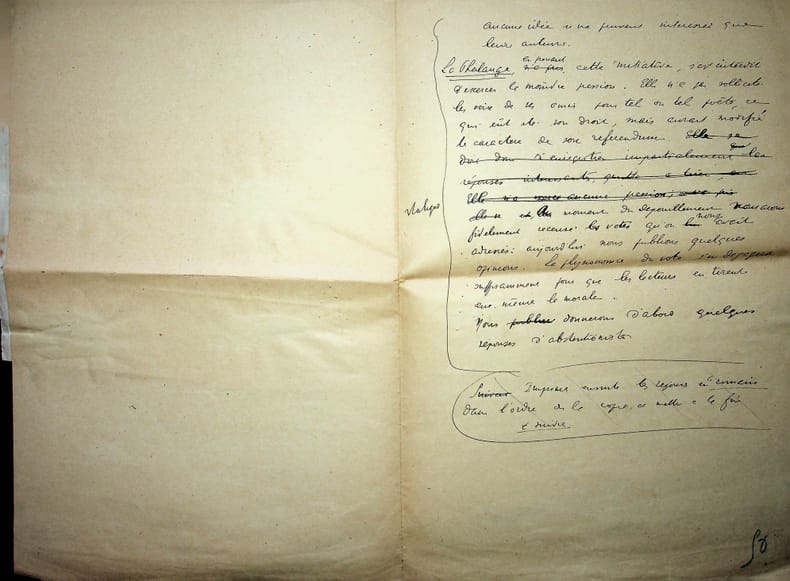 aucune idée & ne peuvent intéresser que
leur auteur.
La Phalange, en prenant cette initiative, s'est interdit
d'exercer la moindre pression. Elle n'a pas sollicité
les voix de ses amis pour tel ou tel poète, ce
qui eût été son droit, mais aurait modifié
le caractère de son referendum. Elle se
doit donc d'enregistrer impartialement les
réponses intéressantes,
Elle n'a exercé aucune pression,
italiques
elle Au moment du dépouillement nous avons
fidèlement recensé les votes qu'on nous avait
adressés : aujourd'hui nous publions quelques
opinions. La physionomie du vote s'en dégagera
suffisamment pour que les lecteurs en tirent
eux-même la morale.
Nous publier donnerons d'abord quelques
réponses d'abstentionistes
Suivent Imprimer ensuite les réponses en romain
dans l'ordre de la copie, et mettre à la fin
à suivre